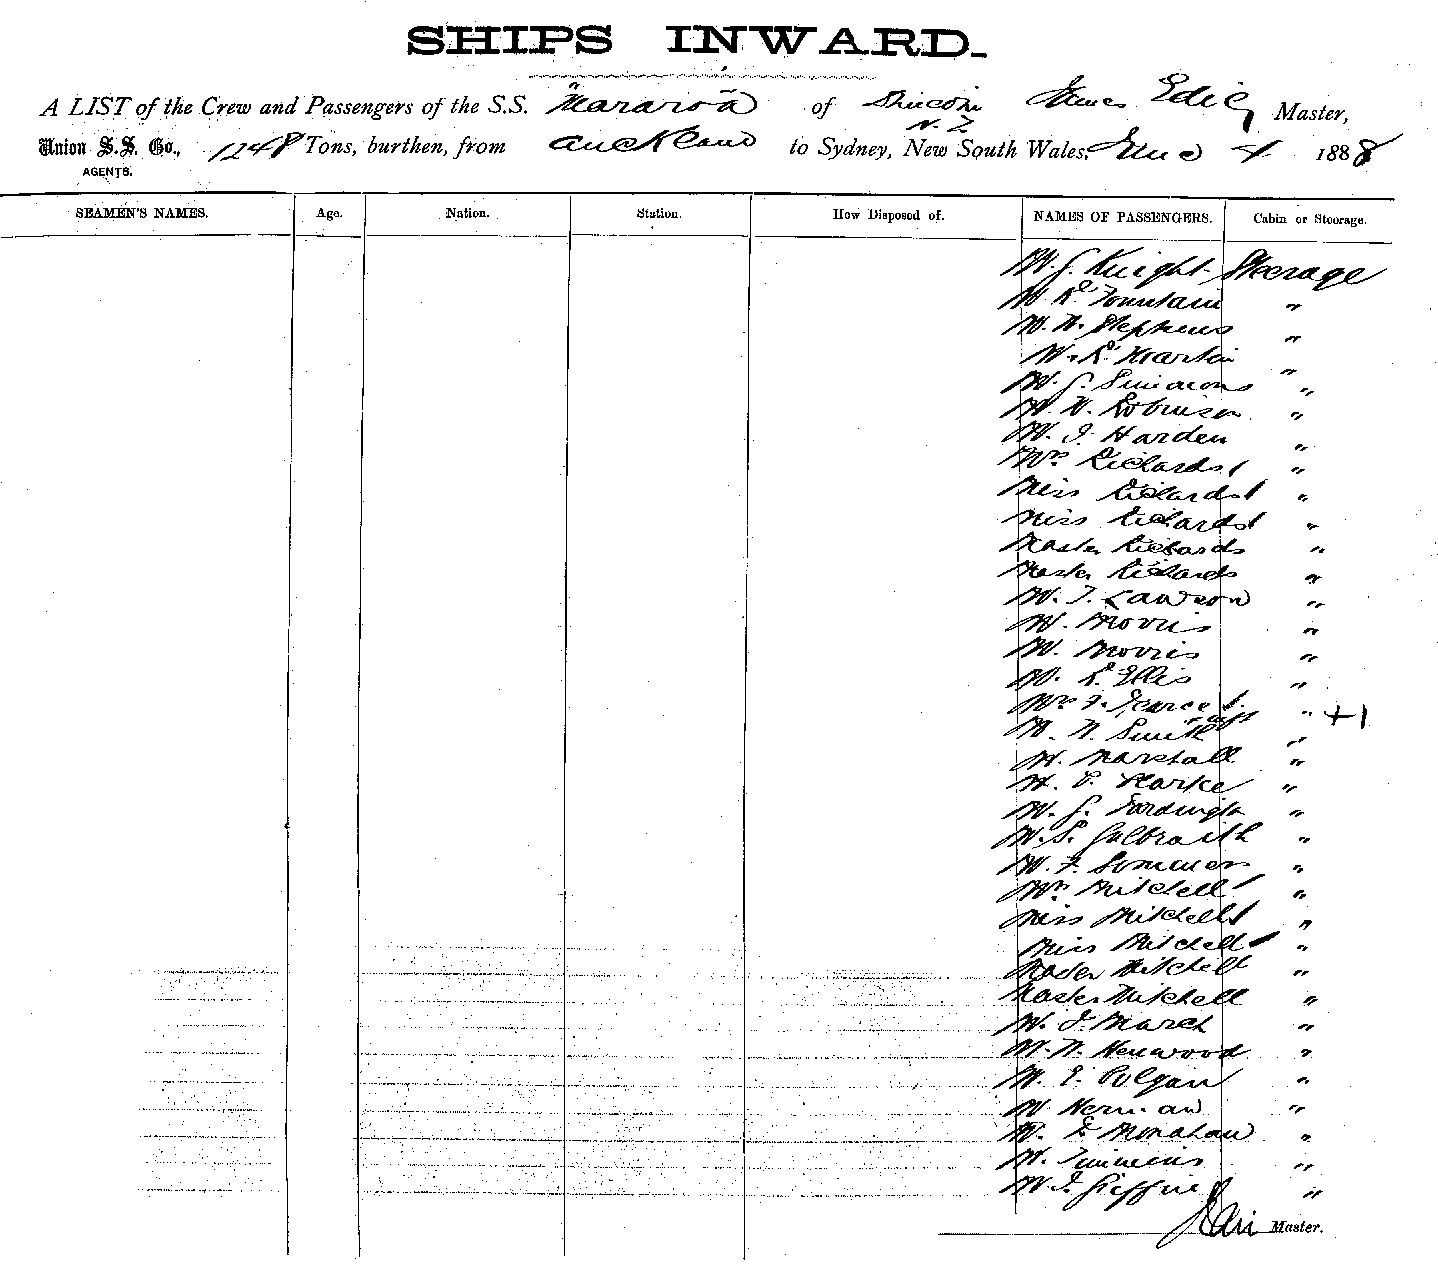 SHIPS INWARD.
A LIST of the Crew and Passengers of the S.S. "Mararoa" of Master,
N.Z.
Union S.S. Co., 1248 Tons, burthen, from Auckland to Sydney, New South Wales, June 4 1888
AGENTS.
SEAMEN'S NAMES. Age. Nation. Station. How Disposed of. NAMES OF PASSENGERS. Cabin or Steerage.
M. J. Knight Steerage
M R. Fountain "
M. W. Stephens "
M. R. Martin "
M. J. Simmons "
M. W. Robinson "
M. J. Harden "
Mrs Richards 1 "
Miss Richards 1 "
Miss Richards 1 "
Master Richards "
Master Richards "
M. T. Lawson "
M. Morris "
M. Morris "
M. R. Ellis "
Mrs Pearce & inft " +1
M. W. Smith "
M. Marshall "
M. Clarke "
M. J. "
M. S. Galbraith "
M. F. Sommers "
Mrs Mitchell 1 "
Miss Mitchell 1 "
Miss Mitchell 1 "
Master Mitchell "
Master Mitchell "
M. J. March "
M. W. Henwood "
M. E. Polgan "
M Herman "
M. D Monahan "
M. Timmins "
M. J. "
Master.